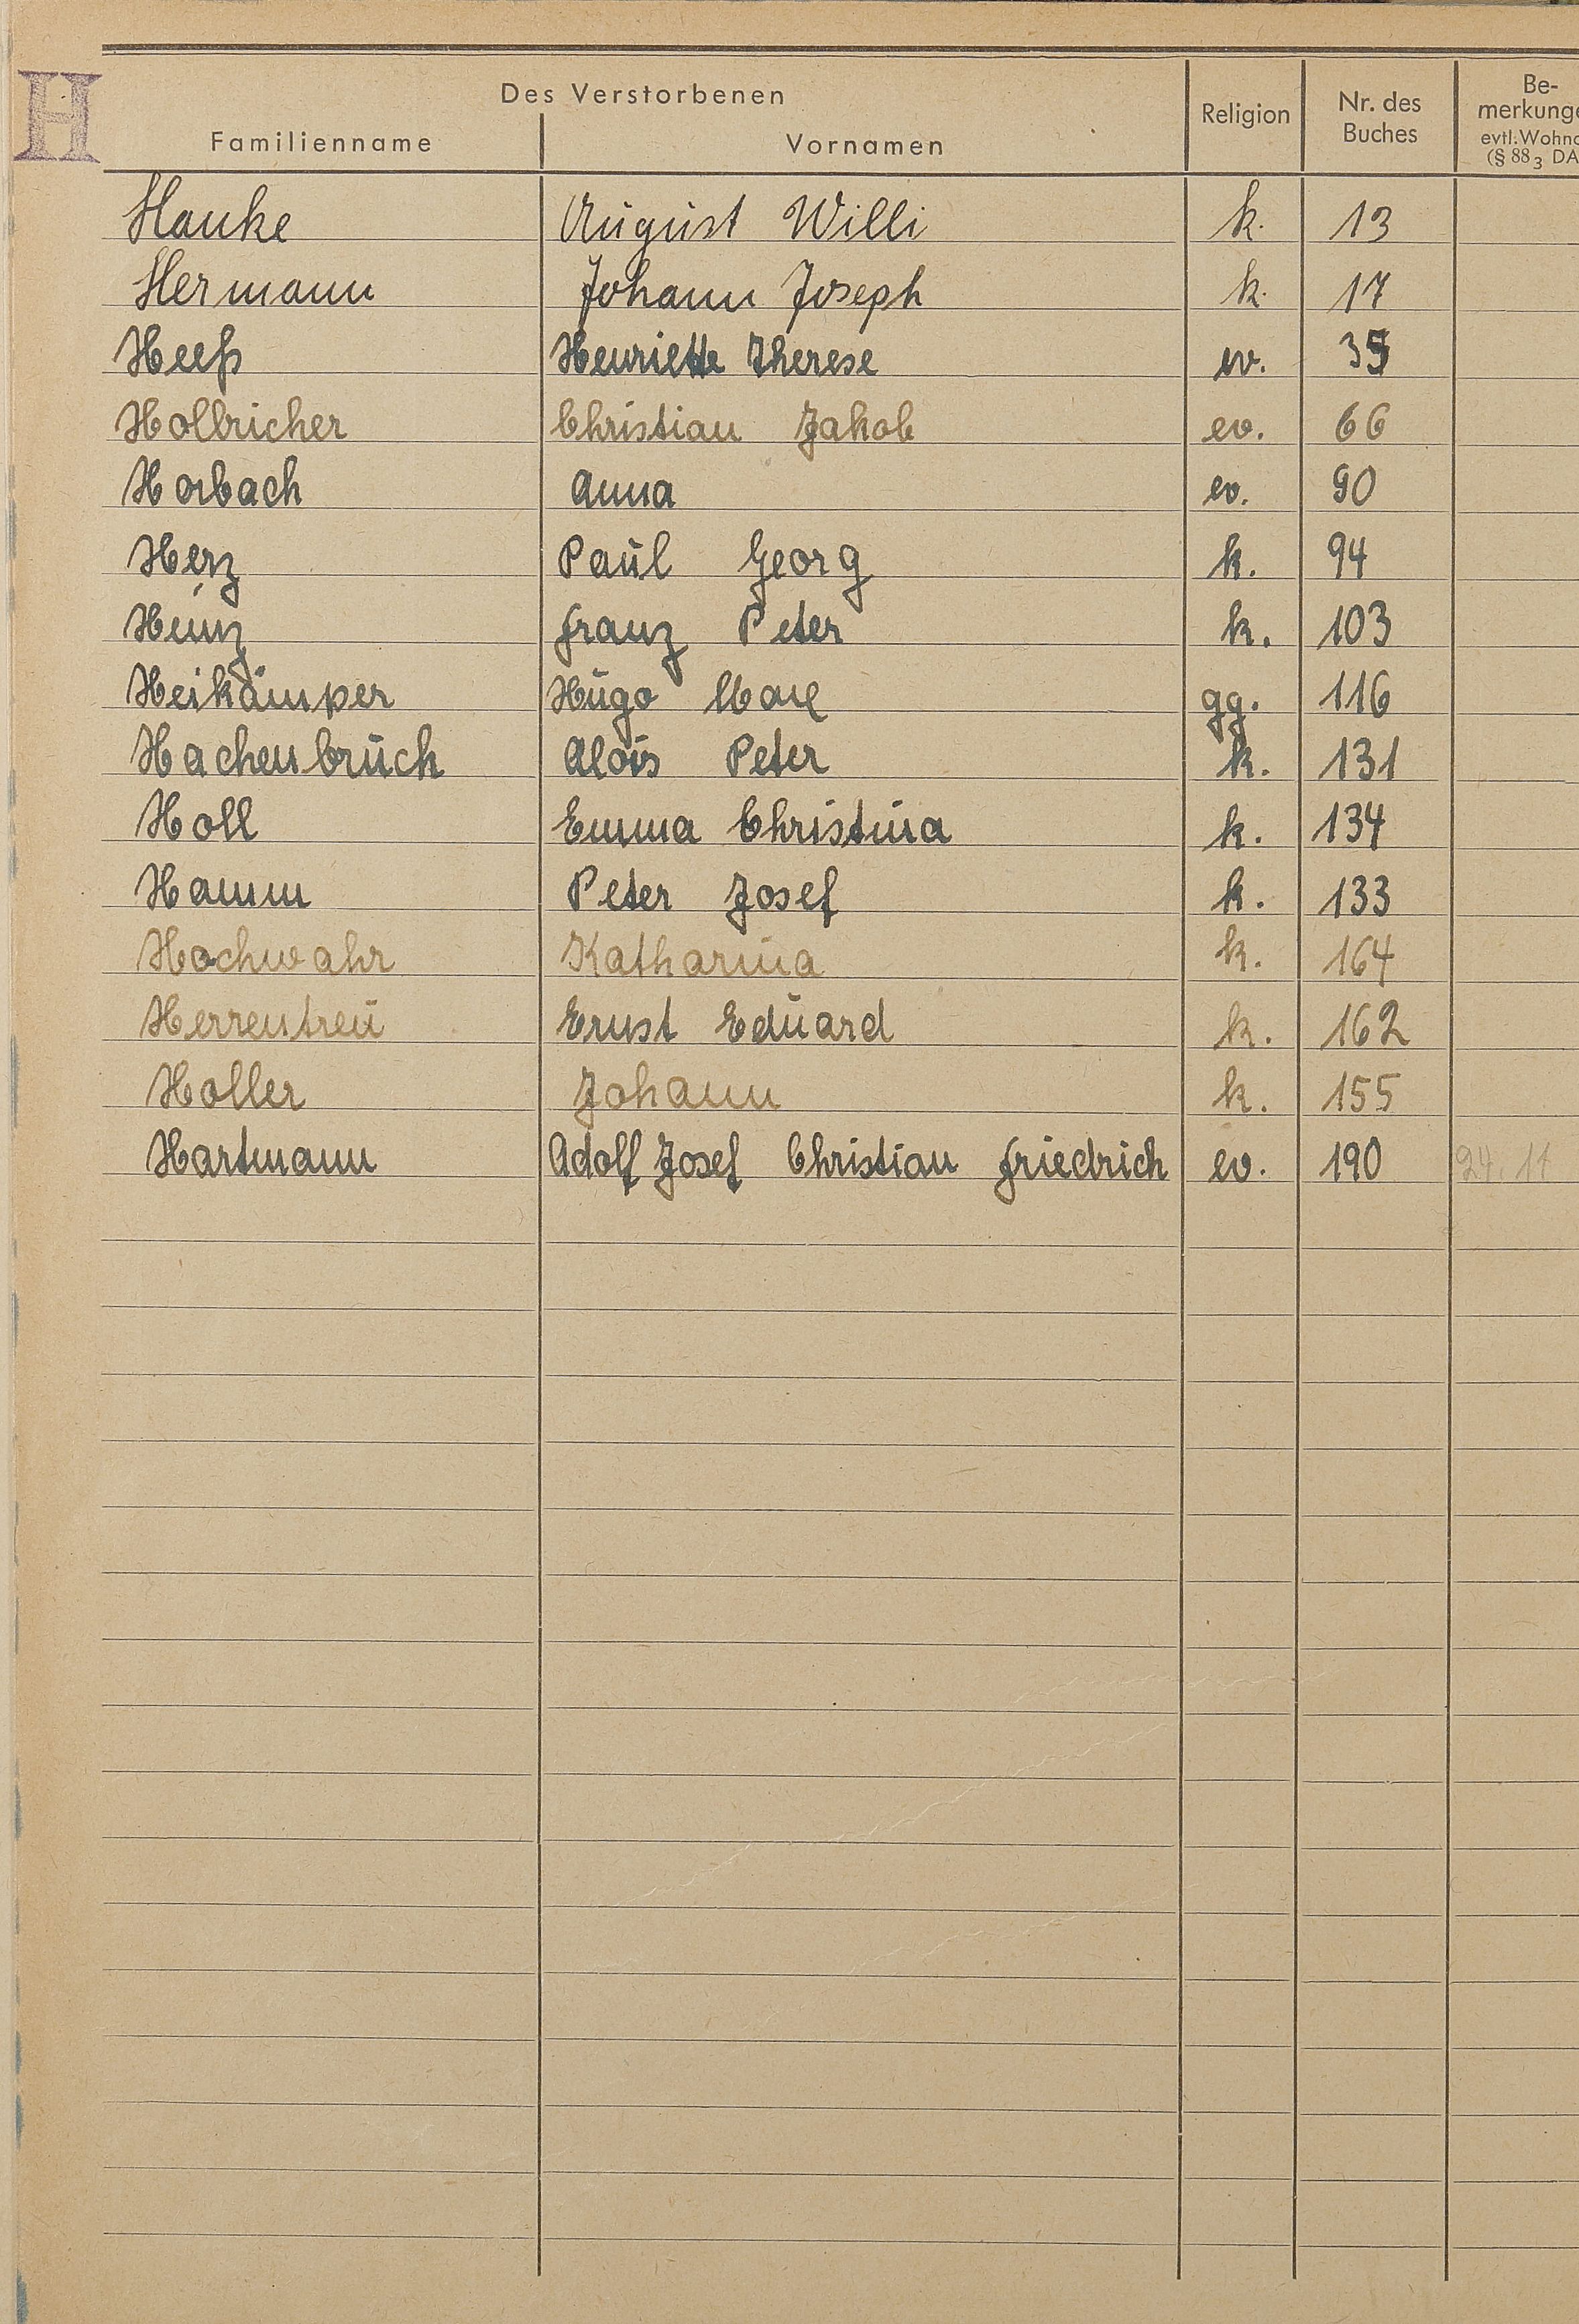 H
Des Verstorbenen
Familienname Vornamen Religion Nr. des Buches Be-merkunge evtl. Wohno (§ 88 3 DA
Hauke August Willi k. 13
Hermann Johann Joseph k. 17
Heeß Henriette Therese ev. 35
Hollricher Christian Jakob ev. 66
Horbach Anna ev. 90
Herz Paul Georg k. 94
Heinz Franz Peter k. 103
Heikämper Hugo Max gg. 116
Hachenbruch Alois Peter k. 131
Holl Emma Christina k. 134
Hamm Peter Josef k. 133
Hochwahr Katharina k. 164
Herrentreu Ernst Eduard k. 162
Holler Johann k. 155
Hartmann Adolf Josef Christian Friedrich ev. 190